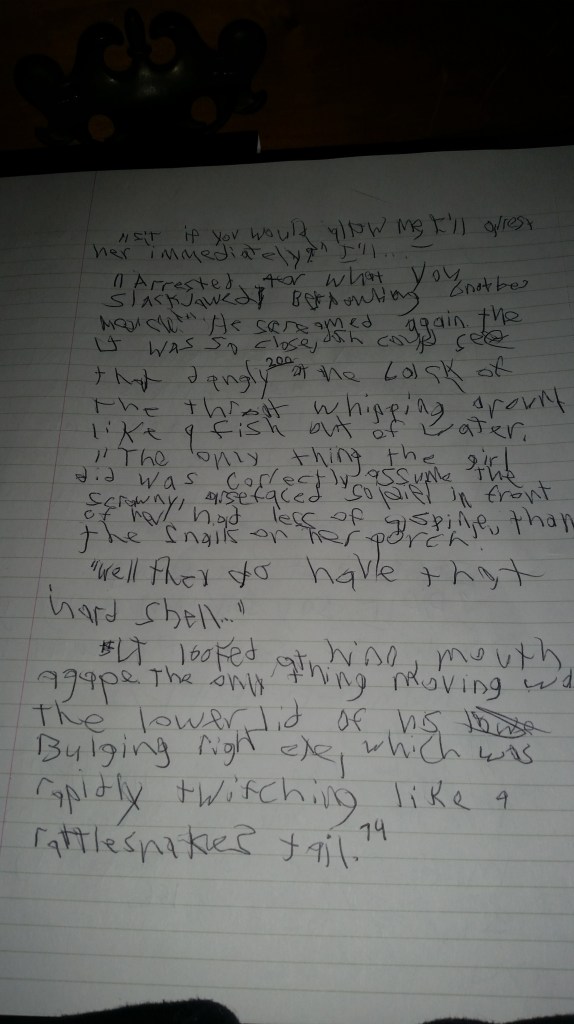 "Sir if you would allow me I'll arrest
her immediately" I'll...
"Arrested for what you
slackjawed, 
 He screamed again. the
Lt was so close, could see
that dangly 200 at the back of
the throat whipping around
like a fish out of water.
"The only thing the girl
did was correctly assume the
scrawny, arsefaced soldier in front
of her had less of a spine, than
the snails on her porch.
"Well they do have that
hard shell..."
Lt looked at him, mouth
agape the only thing moving wa
the lower lid of his
Bulging right eye, which was
rapidly twitching like a
rattlesnakes tail.